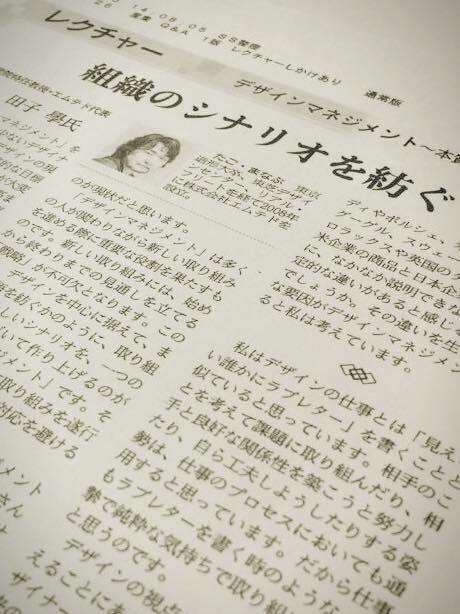 14.08.05 SS整理
26 産業 Q&A 1版 レクチャーしかけあり 通常版
レクチャー
デザインマネジメント～本質
組織のシナリオを紡ぐ
院特任教授・エムテド代表
田子 學氏
たこ・まなぶ 東京
を経て2008年
に株式会社エムテドを
設立。
ディやポルシェ、
グーグル、スウェー
ロラックスや英国のダ
米企業の商品と日本企
に、なかなか説明できな
定的な違いがあると感じ
でしょうか。その違いを生
な要因がデザインマネジメン
ると私は考えています。
のが現状だと思います。
「デザインマネジメント」は多く
の人が関わりながら新しい取り組み
を進める際に重要な役割を果たすも
のです。新しい取り組みには、始め
から終わりまでの見通しを立てる
戦略」が不可欠となります。この
デザインを中心に据えて、ま
を紡ぐかのように、取り組
しいシナリオを、一つの
いて作り上げるのが
ジメント」です。そ
取り組みを遂行
対応を避ける
私はデザインの仕事とは「見え
い誰かにラブレター」を書くことと
似ていると思っています。相手のこ
とを考えて課題に取り組んだり、相
手と良好な関係性を築こうと努力し
たり、自ら工夫しようしたりする姿
勢は、仕事のプロセスにおいても通
用すると思っています。だから仕事
もラブレターを書く時のような
摯で純粋な気持ちで取り組
と思うのです。
デザインの視点
えることにあ
ザイナー